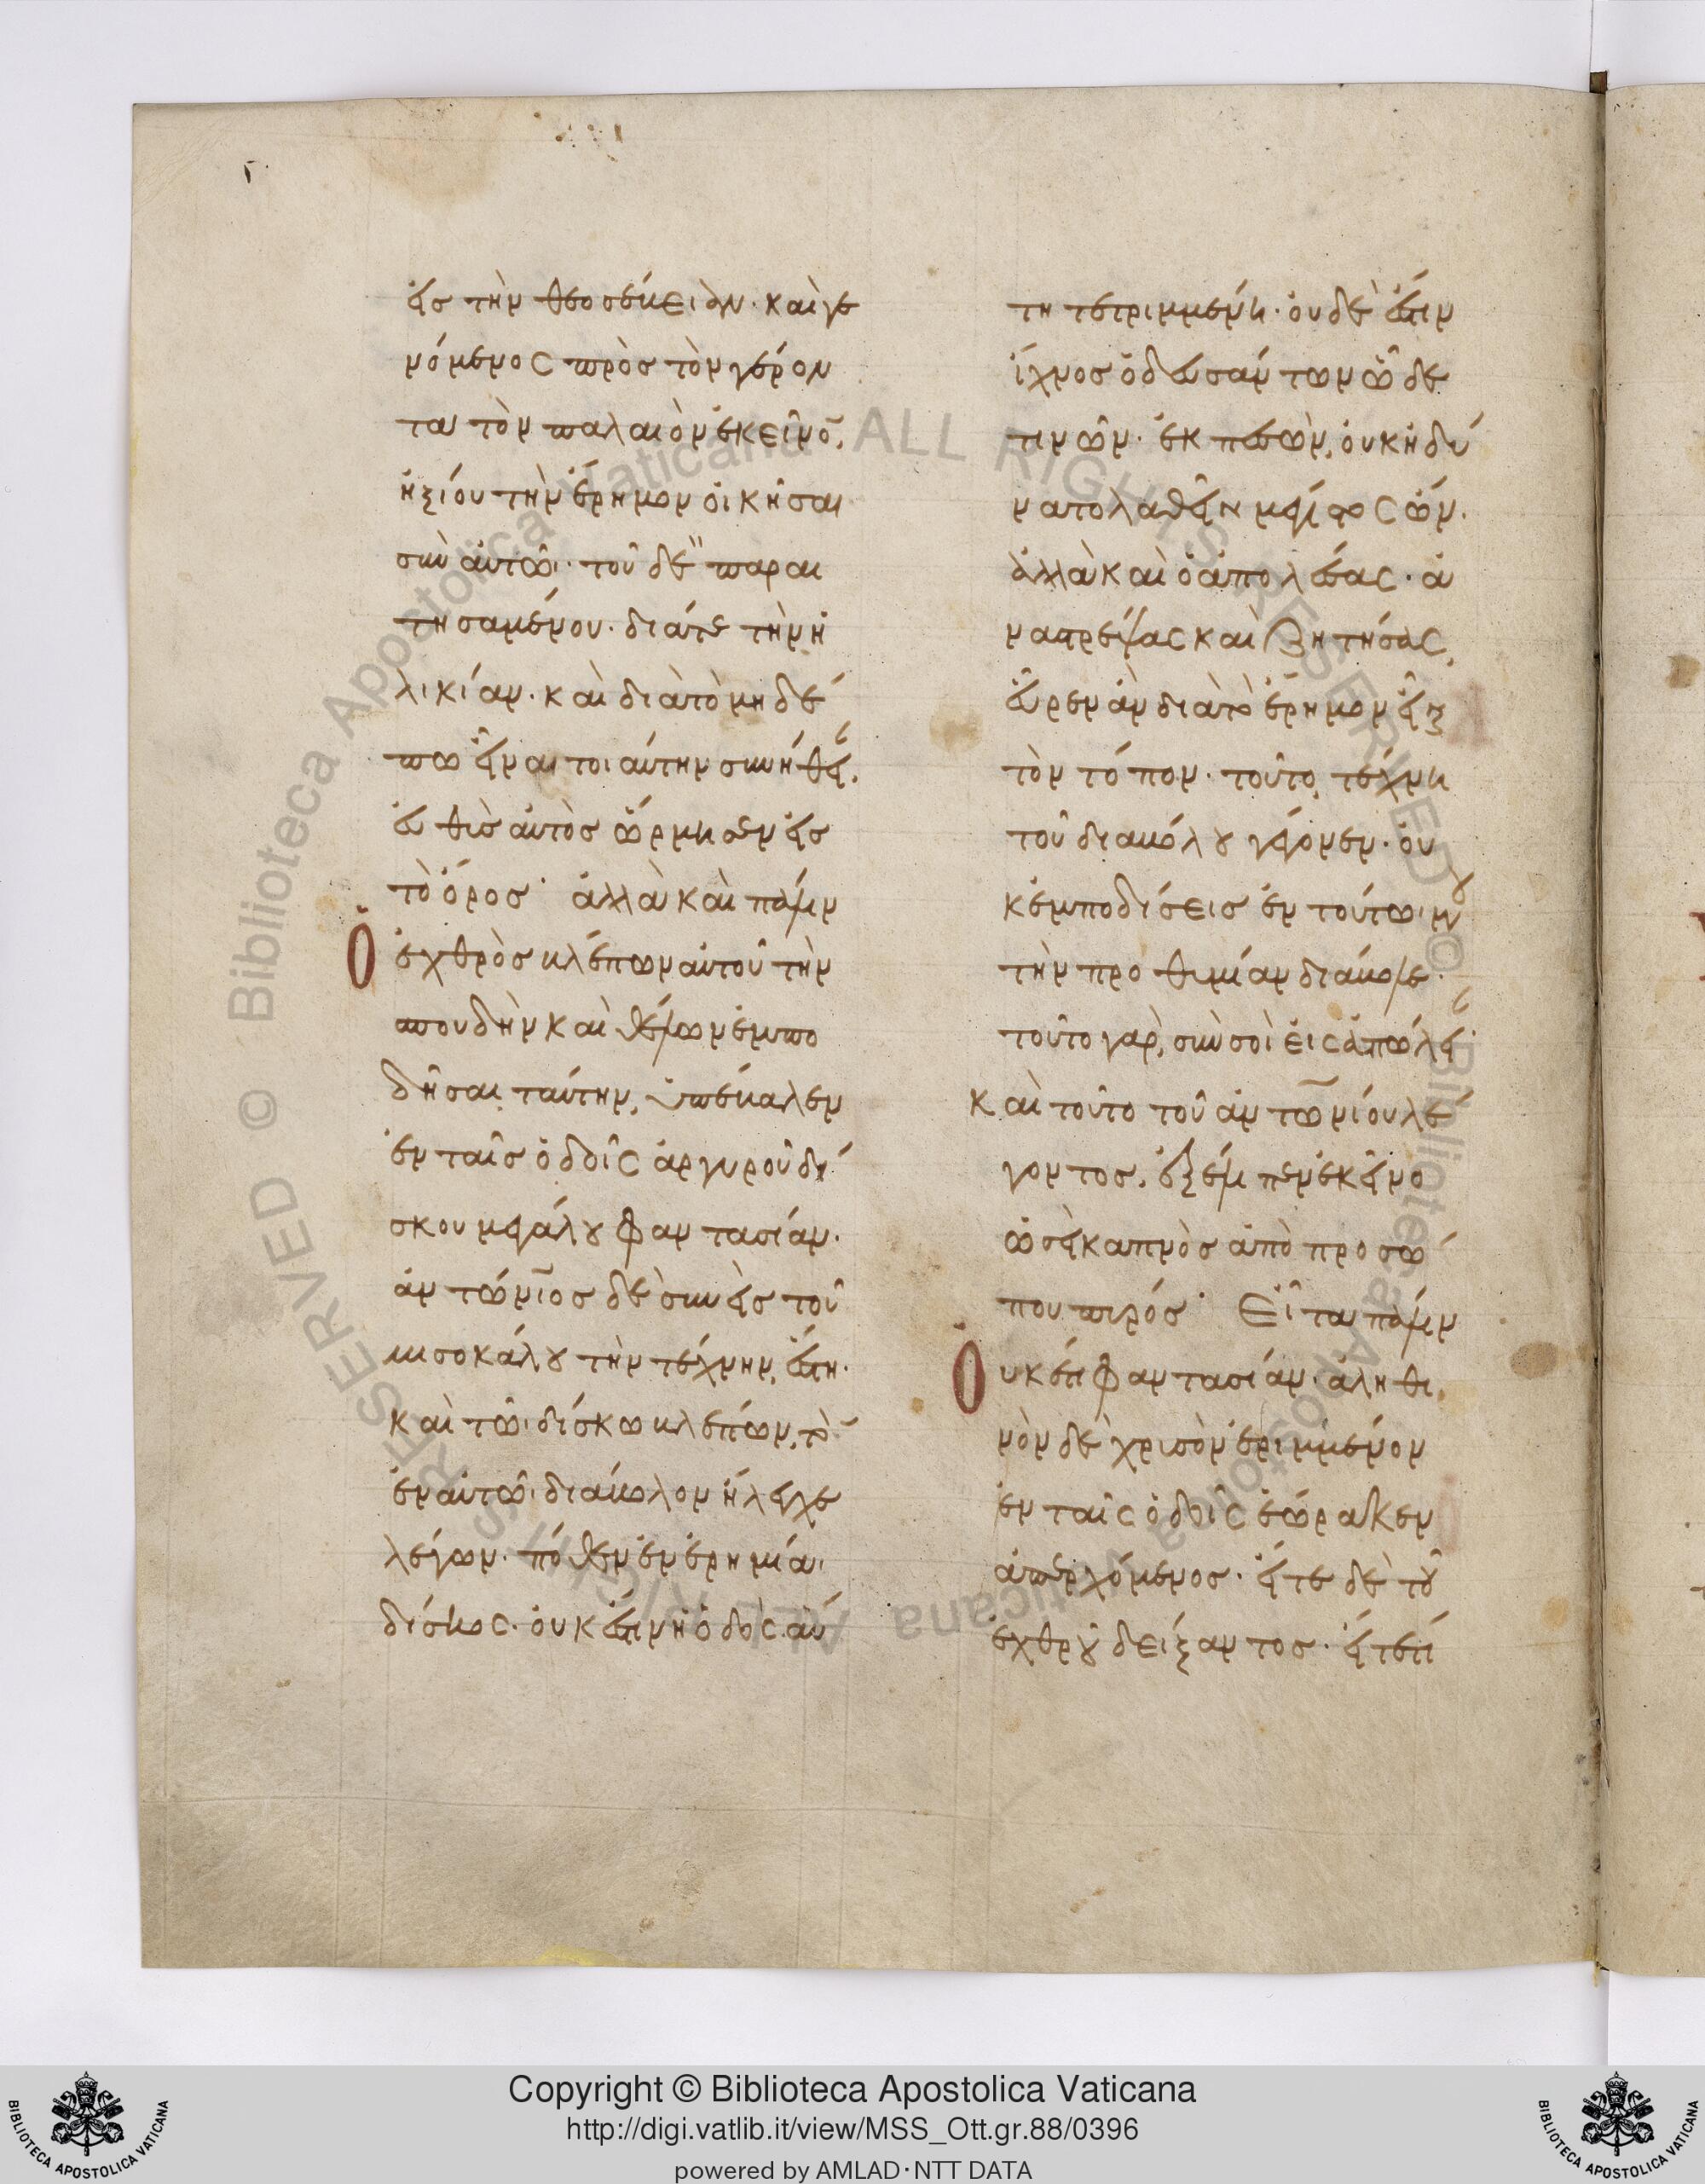 εἰς τὴν θεοσέβειαν· καὶ γε
νόμενος πρὸς τὸν γέρον
τα τὸν παλαιὸν ἐκεῖνο̄,
ἠξίου τὴν ἔρημον οἰκῆσαι
σὺν αὐτῶι· τοῦ δὲ παραι
τησαμένου· διά τε τὴν ἡ
λικίαν· καὶ διὰ τὸ μηδέ
πω εἶναι τοιαύτην συνήθει
εὐθὺς αὐτὸς ὥρμησεν εἰς
τὸ ὄρος· ἀλλὰ καὶ πάλιν
Ὁ ἐχθρὸς βλέπων αὐτοῦ τὴν
σπουδὴν καὶ θέλων ἐμπο
δῆσαι ταύτην, ὑπέβαλεν
ἐν ταῖς ὁδοῖς ἀργυροῦ δί
σκου μεγάλου φαντασίαν·
ἀντώνιος δὲ συνεὶς τοῦ
μισοκάλου τὴν τέχνην, ἔστη·
καὶ τῶι δίσκω βλέπων, τὸ̄
ἐν αὐτῶι διάβολον ἤλεγχε
λέγων· πόθεν ἐν ἐρημίαι
δίσκος· οὐκ ἔστιν ἡ ὁδὸς αὕ
τη τετριμμένη· οὐδὲ ἔστιν
ἴχνος ὁδευσάντων ὧδέ
τινων· ἐκπεσὼν, οὐκ ἠδύ
νατο λαθεῖν μέγιστος ὤν·
ἀλλὰ καὶ ὁ ἀπολέσας· ἀ
ναστρέψας καὶ ζητήσας,
εὗρεν ἂν διὰ τὸ ἔρημον εἶναι
τὸν τόπον· τοῦτο, τέχνη
τοῦ διαβόλου γέγονεν· οὐ
κ ἐμποδίσεις ἐν τούτωι μου
τὴν προθυμίαν διάβολε·
τοῦτο γὰρ, σὺν σοὶ εἰς ἀπώλει
Καὶ τοῦτο τοῦ ἀντωνίου λέ
γοντος, ἐξέλιπεν ἐκεῖνο
ὡσεὶ καπνὸς ἀπὸ προσώ
που πυρός· Εἶτα πάλιν
Οὐκέτι φαντασίαν· ἀληθι
νὸν δὲ χρυσὸν ἐρριμμένον
ἐν ταῖς ὁδοῖς ἑώρακεν
ἀπερχόμενος· εἴτε δὲ τοῦ
ἐχθροῦ δείξαντος· εἴτέ τι
Copyright © Biblioteca Apostolica Vaticana
http://digi.vatlib.it/view/MSS_Ott.gr.88/0396
powered by AMLAD·NTT DATA